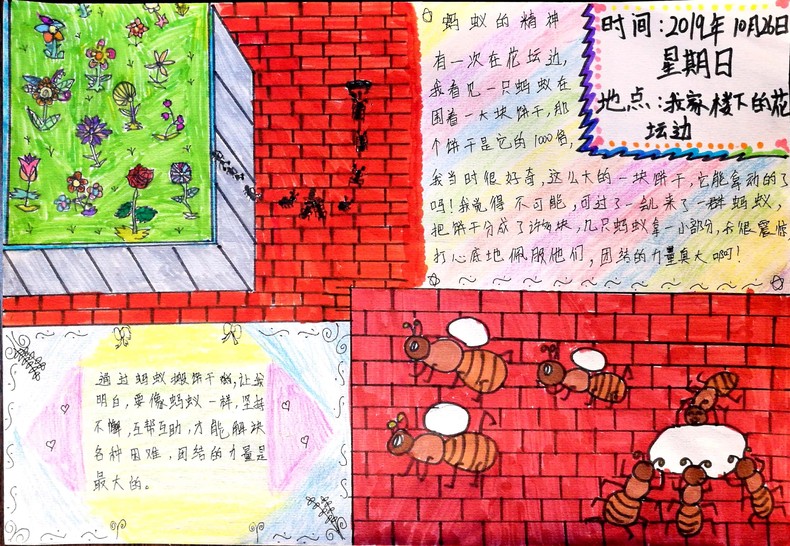 蚂蚁的精神
有一次在花坛边,
我看见一只蚂蚁在
围着一大块饼干,那
个饼干是它的1000倍,
我当时很好奇,这么大的一块饼干,它能拿动的了
吗!我觉得不可能,可过了一会儿来了一群蚂蚁,
把饼干分成了许多块,几只蚂蚁拿一小部分,我很震惊
打心底地佩服他们,团结的力量真大啊!
时间:2019年10月26日
星期日
地点:我家楼下的花
坛边
通过蚂蚁搬饼干,让我
明白,要像蚂蚁一样,坚持
不懈,互帮互助,才能解决
各种困难,团结的力量是
最大的。